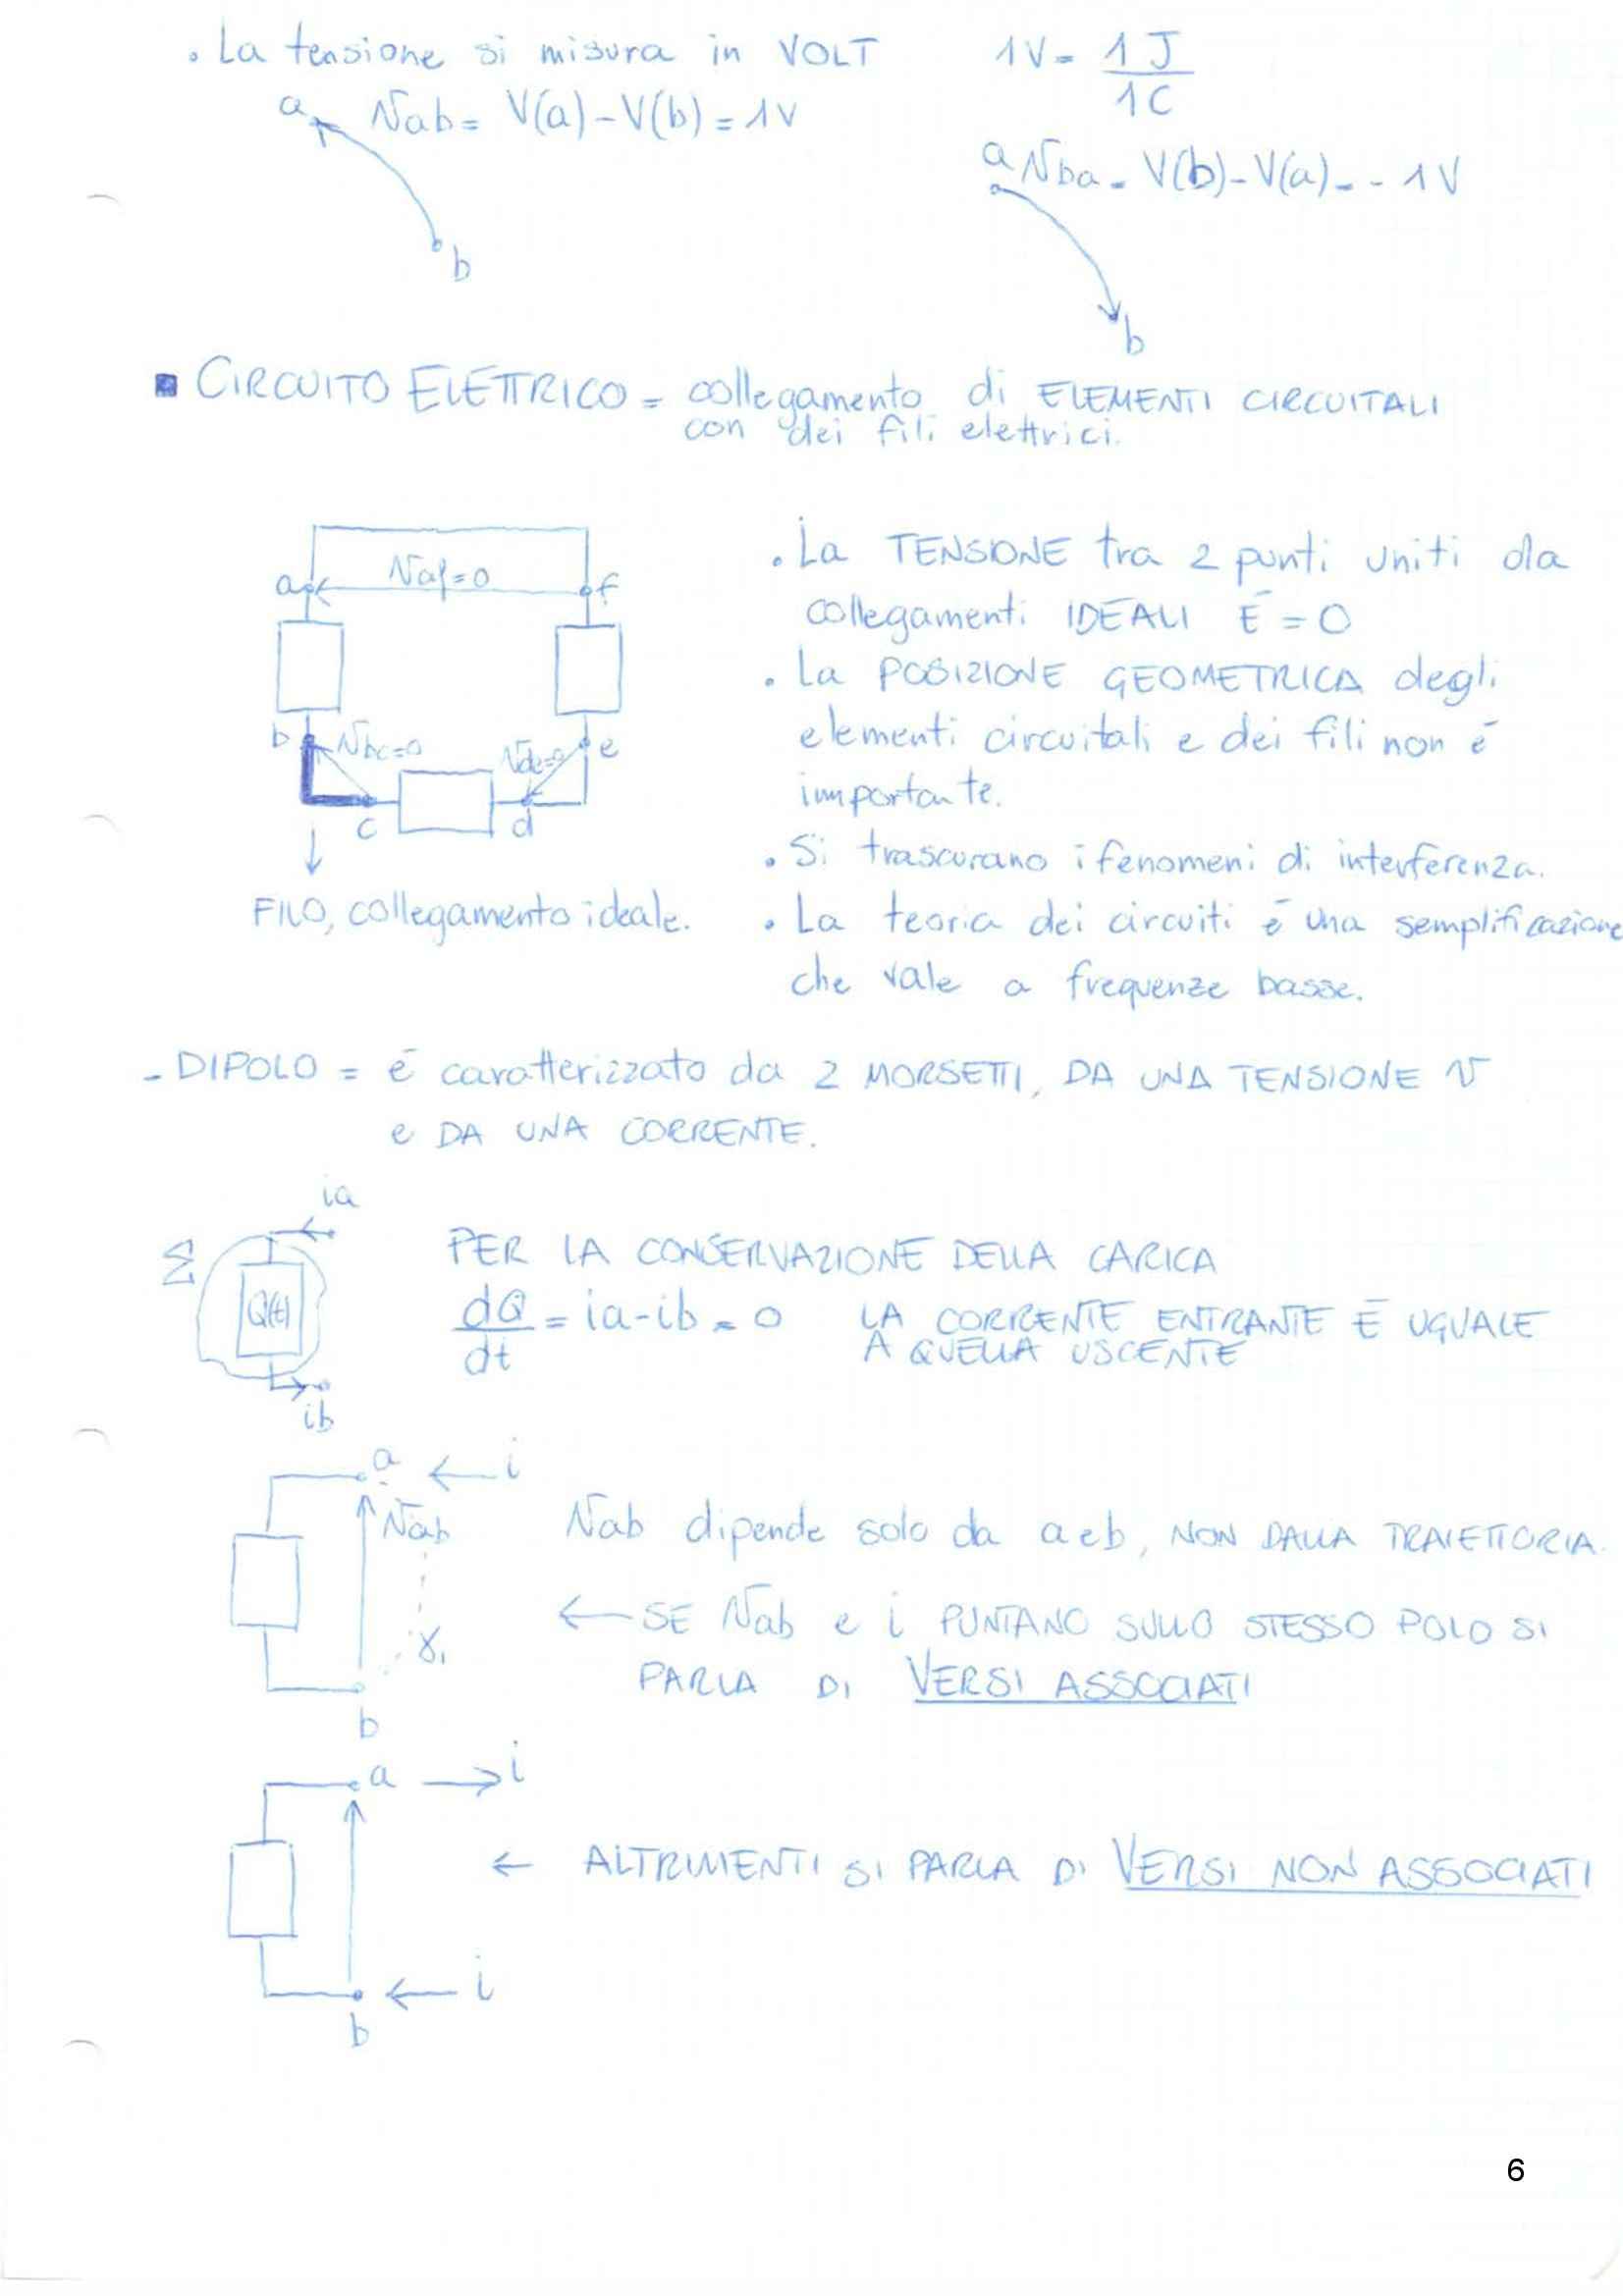 . La tensione si misura in VOLT 1V = 1 J / 1C
a Vab = V(a) - V(b) = 1V
a Vba = V(b) - V(a) = - 1V
b
b
▪ CIRCUITO ELETTRICO = collegamento di ELEMENTI CIRCUITALI
con dei fili elettrici.
. La TENSIONE tra 2 punti uniti da
a Vaf=0 f
collegamenti IDEALI È = 0
. La POSIZIONE GEOMETRICA degli
b Vbc=0 Vde=0 e
elementi circuitali e dei fili non è
importante.
c d
. Si trascurano i fenomeni di interferenza.
FILO, collegamento ideale.
. La teoria dei circuiti è una semplificazione
che vale a frequenze basse.
- DIPOLO = è caratterizzato da 2 MORSETTI, DA UNA TENSIONE V
e DA UNA CORRENTE.
ia
Σ Q(t)
PER LA CONSERVAZIONE DELLA CARICA
dQ/dt = ia - ib = 0 LA CORRENTE ENTRANTE È UGUALE
A QUELLA USCENTE
ib
a ← i
Vab
Vab dipende solo da a e b, NON DALLA TRAIETTORIA.
← SE Vab e i PUNTANO SULLO STESSO POLO SI
γ1
PARLA DI VERSI ASSOCIATI
b
a → i
← ALTRIMENTI SI PARLA DI VERSI NON ASSOCIATI
← i
b
6